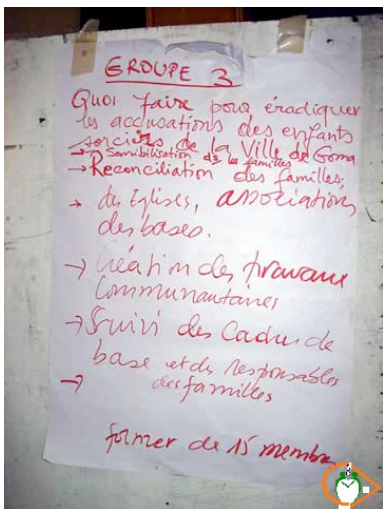 GROUPE 3
Quoi faire pour éradiquer
les accusations des enfants
sorciers de la Ville de Goma
→ Sensibilisation de les familles
→ Réconciliation des familles,
→ des Eglises, associations
des bases.
→ Création des travaux
Communautaires
→ Suivi des Cadres de
base et des responsables
→ des familles
former de 15 membre